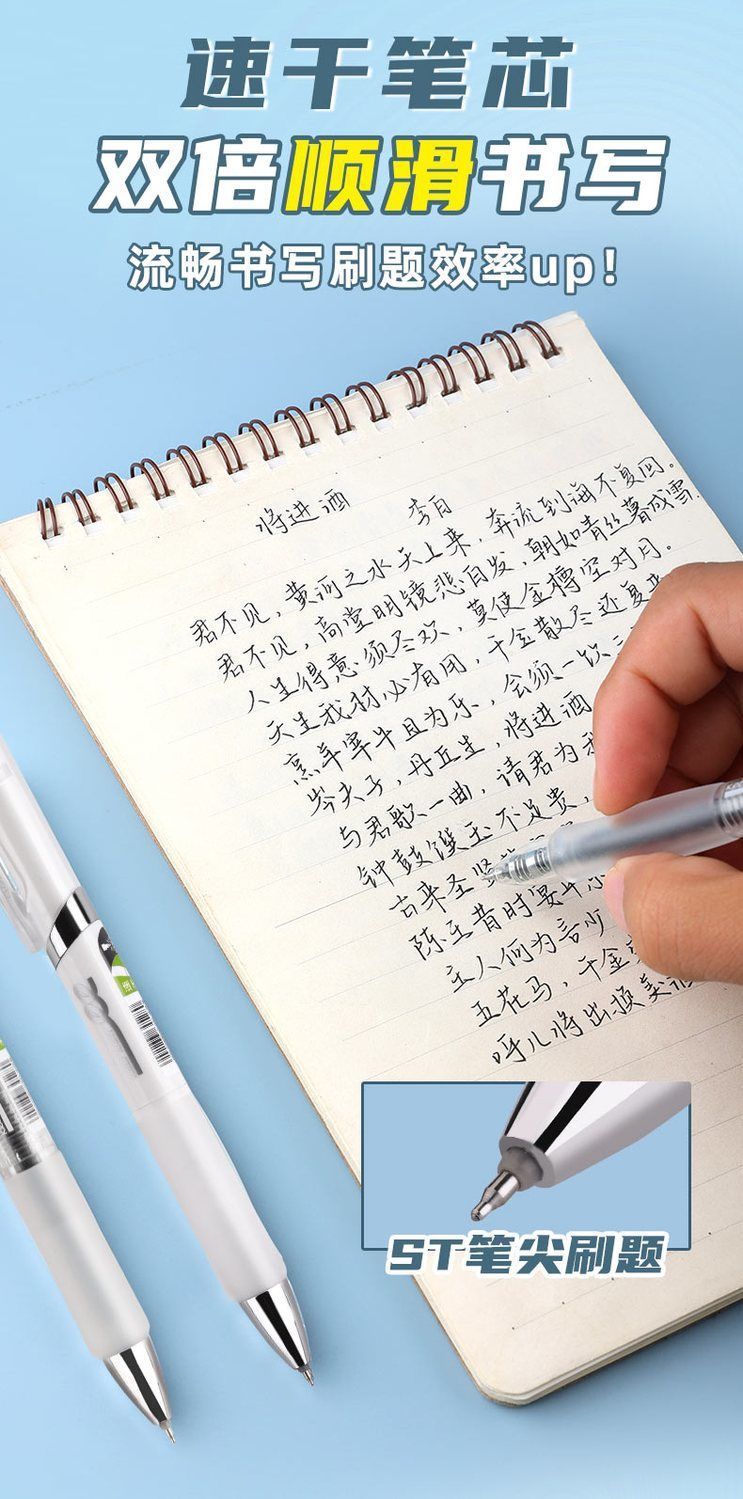 速干笔芯
双倍顺滑书写
流畅书写刷题效率up!
将进酒 李白
君不见,黄河之水天上来,奔流到海不复回。
君不见,高堂明镜悲白发,朝如青丝暮成雪
人生得意须尽欢,莫使金樽空对月。
天生我材必有用,千金散尽还复来
烹羊宰牛且为乐,会须一饮三
岑夫子,丹丘生,将进酒
与君歌一曲,请君为我
钟鼓馔玉不足贵,
古来圣贤
陈王昔时宴平乐
主人何为言少
五花马,千金裘
呼儿将出换美酒
ST笔尖刷题